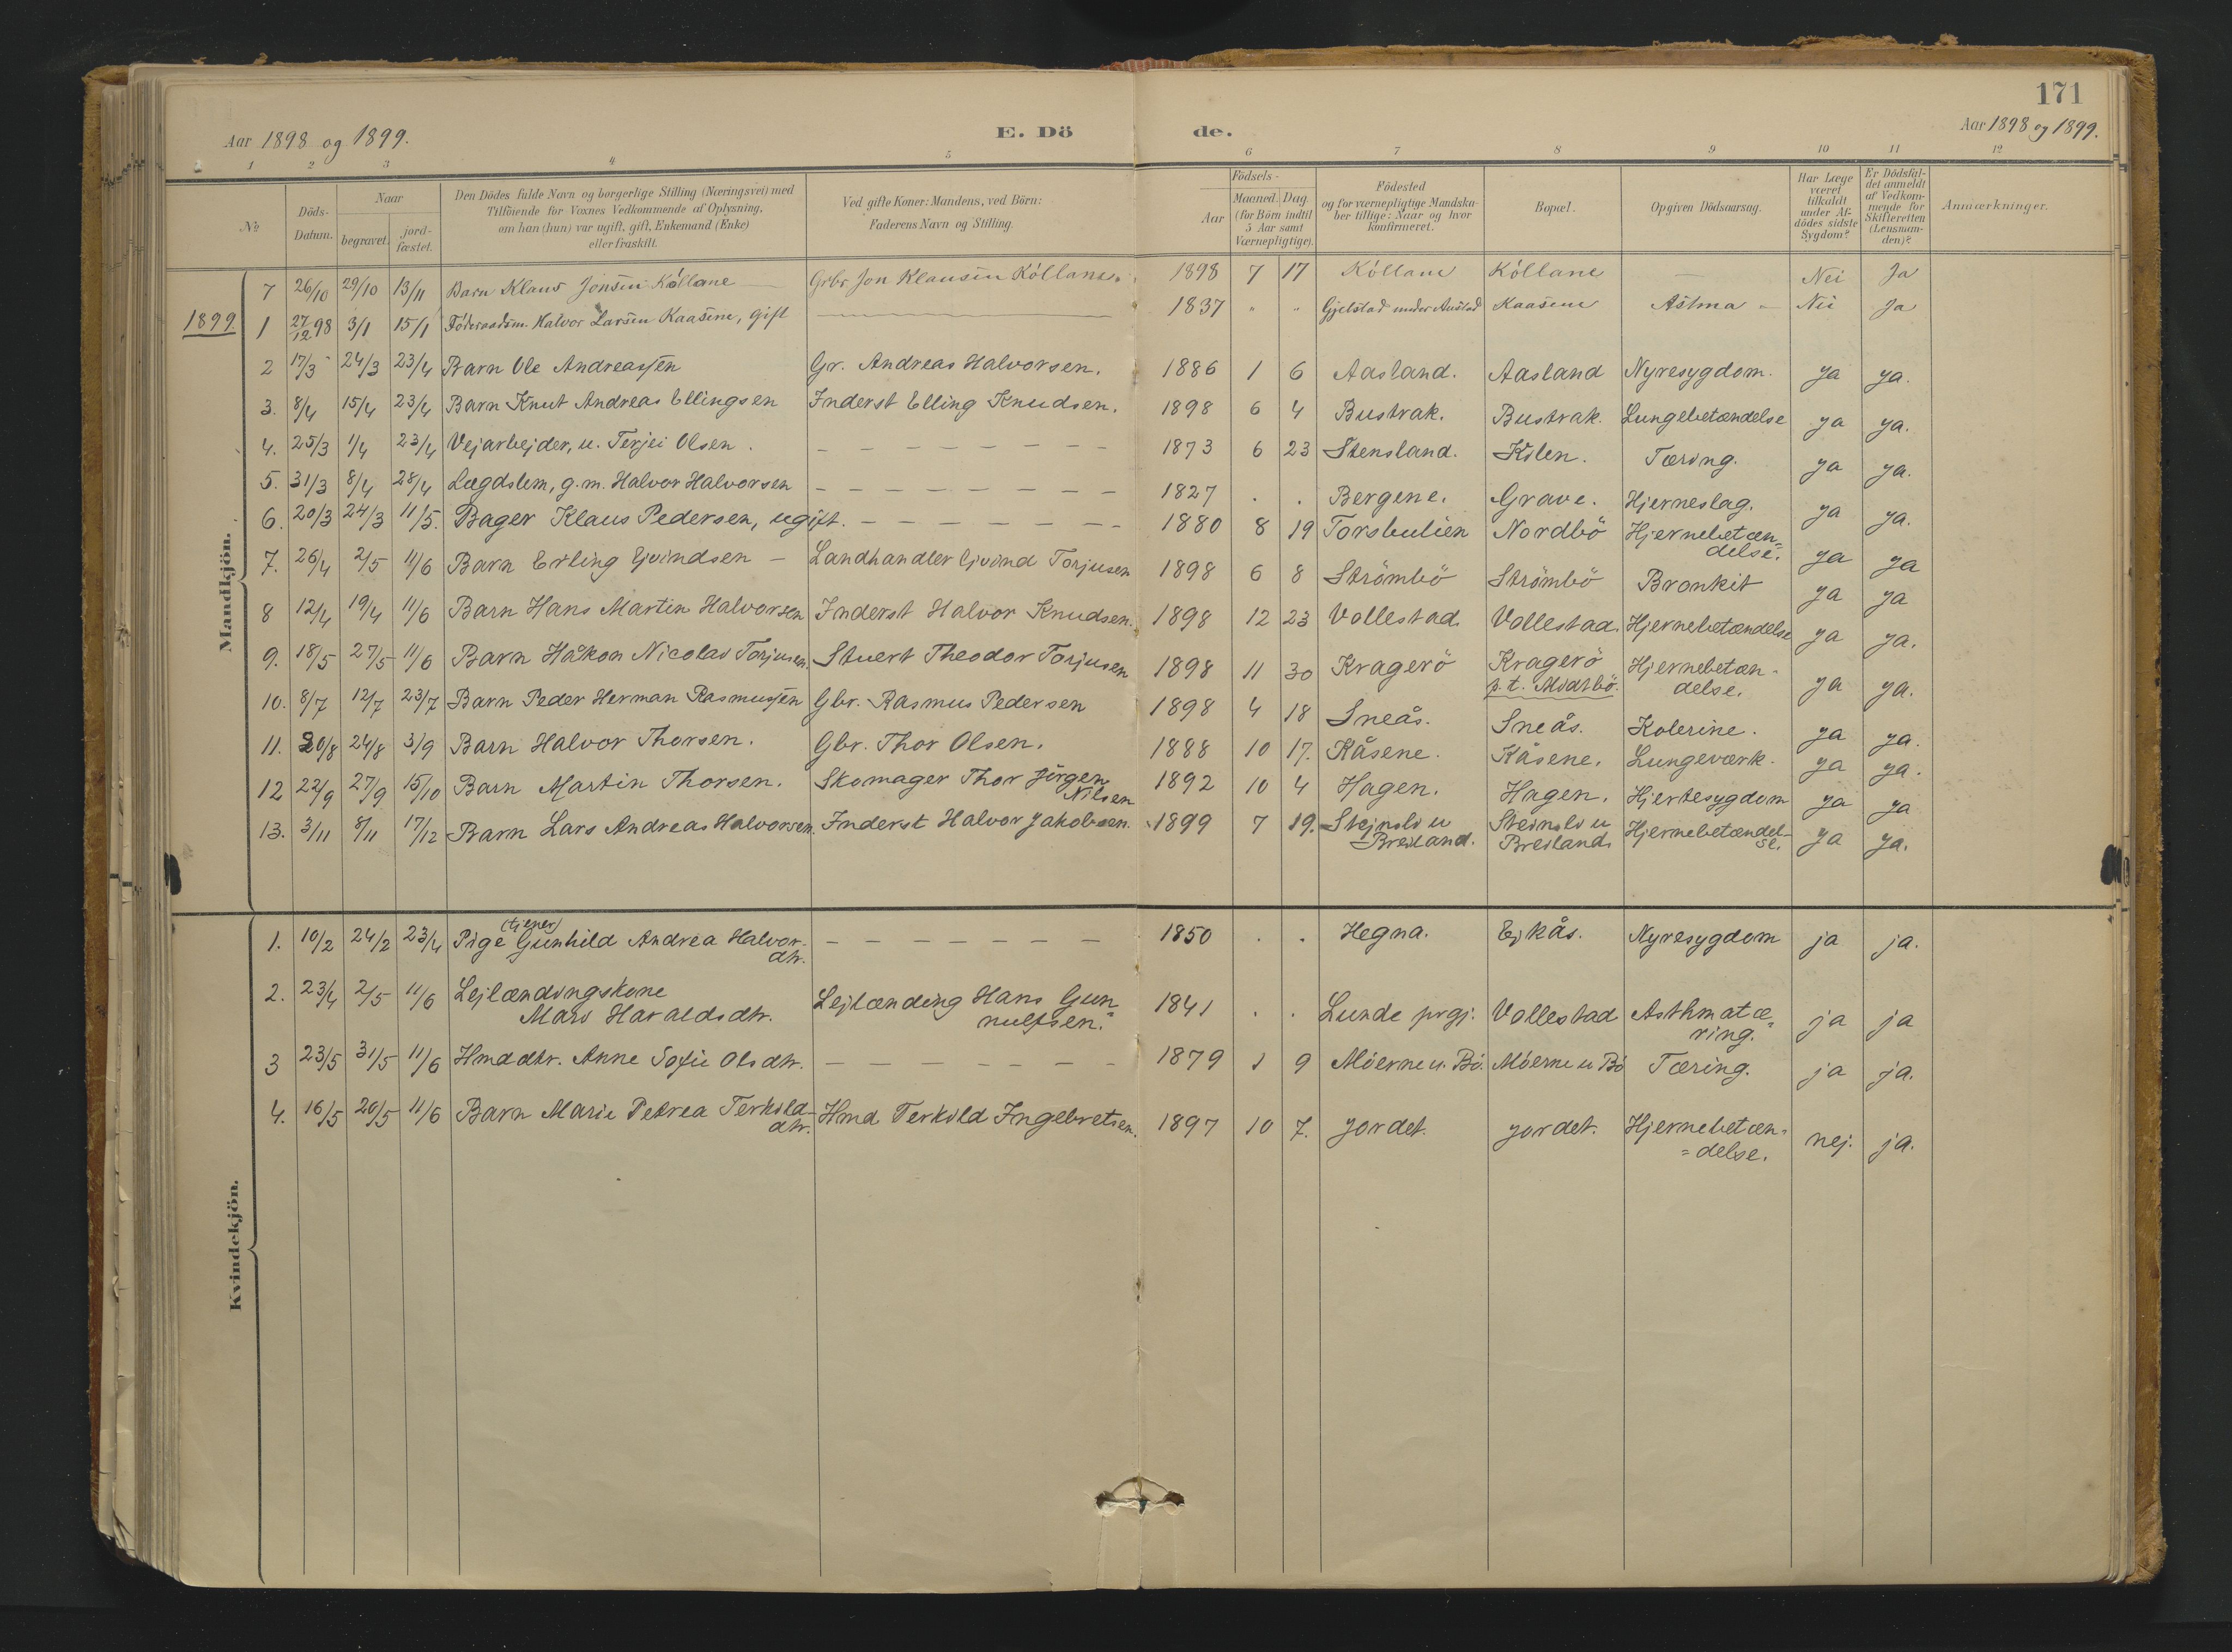 171
Aar 1898 og 1899. E. Dö de. Aar 1898 og 1899.
1 2 3 4 5 6 7 8 9 10 11 12
No
Döds-Datum.
Naar
begravet. jord-fæstet.
Den Dödes fulde Navn og borgerlige Stilling (Næringsvei) med
Tilföiende for Voxnes Vedkommende af Oplysning,
om han (hun) var ugift, gift, Enkemand (Enke)
eller fraskilt.
Ved gifte Koner: Mandens, ved Börn:
Faderens Navn og Stilling.
Födsels-
Aar Maaned. Dag
(for Börn indtil
5 Aar samt
Værnepligtige).
Födested
og for værnepligtige Mandska-
ber tillige: Naar og hvor
konfirmeret.
Bopæl.
Opgiven Dödsaarsag.
Har Læge
været
tilkaldt
under Af-
dödes sidste
Sygdom?
Er Dödsfal-
det anmeldt
af Vedkom-
mende for
Skifteretten
(Lensman-
den)?
Anmærkninger.
Mandkjön.
7 26/10 29/10 13/11 Barn Klaus Jonsen Kóllane Grbr Jon Klausen Kóllane. 1898 7 17 Kóllane Kóllane — Nei Ja
1899. 1 27/12 98 3/1 15/1 Föderaadsm. Halvor Larsen Kaasene, gift — 1837 " " Gjelstad under Austad Kaasene Astma - Nei Ja
2 17/3 24/3 23/4 Barn Ole Andreassen Gr. Andreas Halvorsen. 1886 1 6 Aasland. Aasland Nyresygdom. ja ja.
3. 8/4 15/4 23/4 Barn Knut Andreas Ellingsen Inderst Elling Knudsen. 1898 6 4 Bustrak. Bustrak. Lungebetændelse ja ja.
4. 25/3 1/4 23/4 Vejarbejder, u. Terjei Olsen. - - - - - - - 1873 6 23 Stensland. Kilen. Tæring. ja ja.
5. 31/3 8/4 28/4 Lægdslem, g.m. Halvor Halvorsen - - - - - - - - 1827 . . Bergene. Grave. Hjerneslag. ja ja.
6. 20/3 24/3 11/5. Bager Klaus Pedersen, ugift. - - - - - - - 1880 8 19 Torsbulien Nordbö Hjernebetæn=
delse. ja ja
7. 26/4 2/5 11/6 Barn Erling Ejvindsen - Landhandler Ejvind Torjusen 1898 6 8 Strömbö Strömbö Bronkit ja ja
8 12/4 19/4 11/6 Barn Hans Martin Halvorsen Inderst Halvor Knudsen. 1898 12 23 Vollestad Vollestad. Hjernebetændelse ja ja.
9. 18/5 27/5 11/6 Barn Håkon Nicolas Torjusen. Stuert Theodor Torjusen 1898 11 30 Kragerö Kragerö Hjernebetæn-
p.t. Modtbö. delse. ja ja.
10. 8/7 12/7 23/7 Barn Peder Herman Rasmussen Gbr. Rasmus Pedersen 1898 4 18 Sneås. Sneås. Kolerine. ja ja.
11. 20/8 24/8 3/9 Barn Halvor Thorsen. Gbr. Thor Olsen. 1888 10 17. Kåsene. Kåsene. Lungeværk. ja ja.
12 22/9 27/9 15/10 Barn Martin Thorsen. Skomager Thor Jörgen 1892 10 4 Hagen. Hagen. Hjertesygdom ja ja
Nilsen
13. 3/11 8/11 17/12 Barn Lars Andreas Halvorsen. Inderst Halvor Jakobsen. 1899 7 19. Stejnsli u Steinsli u Hjernebetændel-
Breiland. Breiland. se. ja ja.
Kvindekjön.
(tjener)
1. 10/2 24/2 23/4 Pige Gunhild Andrea Halvor- - - - - - - - 1850 . . Hegna. Ejkås. Nyresygdom ja ja.
dtr.
2. 23/4 2/5 11/6 Lejlændingskone Lejlænding Hans Gun= 1841 . . Lunde prgj. Vollestad Asthmatæ=
Mari Haraldsdtr. nulfsen. ring. ja ja
3 23/5 31/5 11/6 Hmddtr. Anne Sofie Olsdtr. - - - - - - - 1879 1 9 Móerne u. Bö. Móerne u Bö Tæring. ja ja.
4. 16/5 20/5 11/6 Barn Marie Petrea Terkild- Hmd Terkild Ingebretsen. 1897 10 7. Jordet. Jordet. Hjernebetæn-
dtr. =delse. nej. ja.